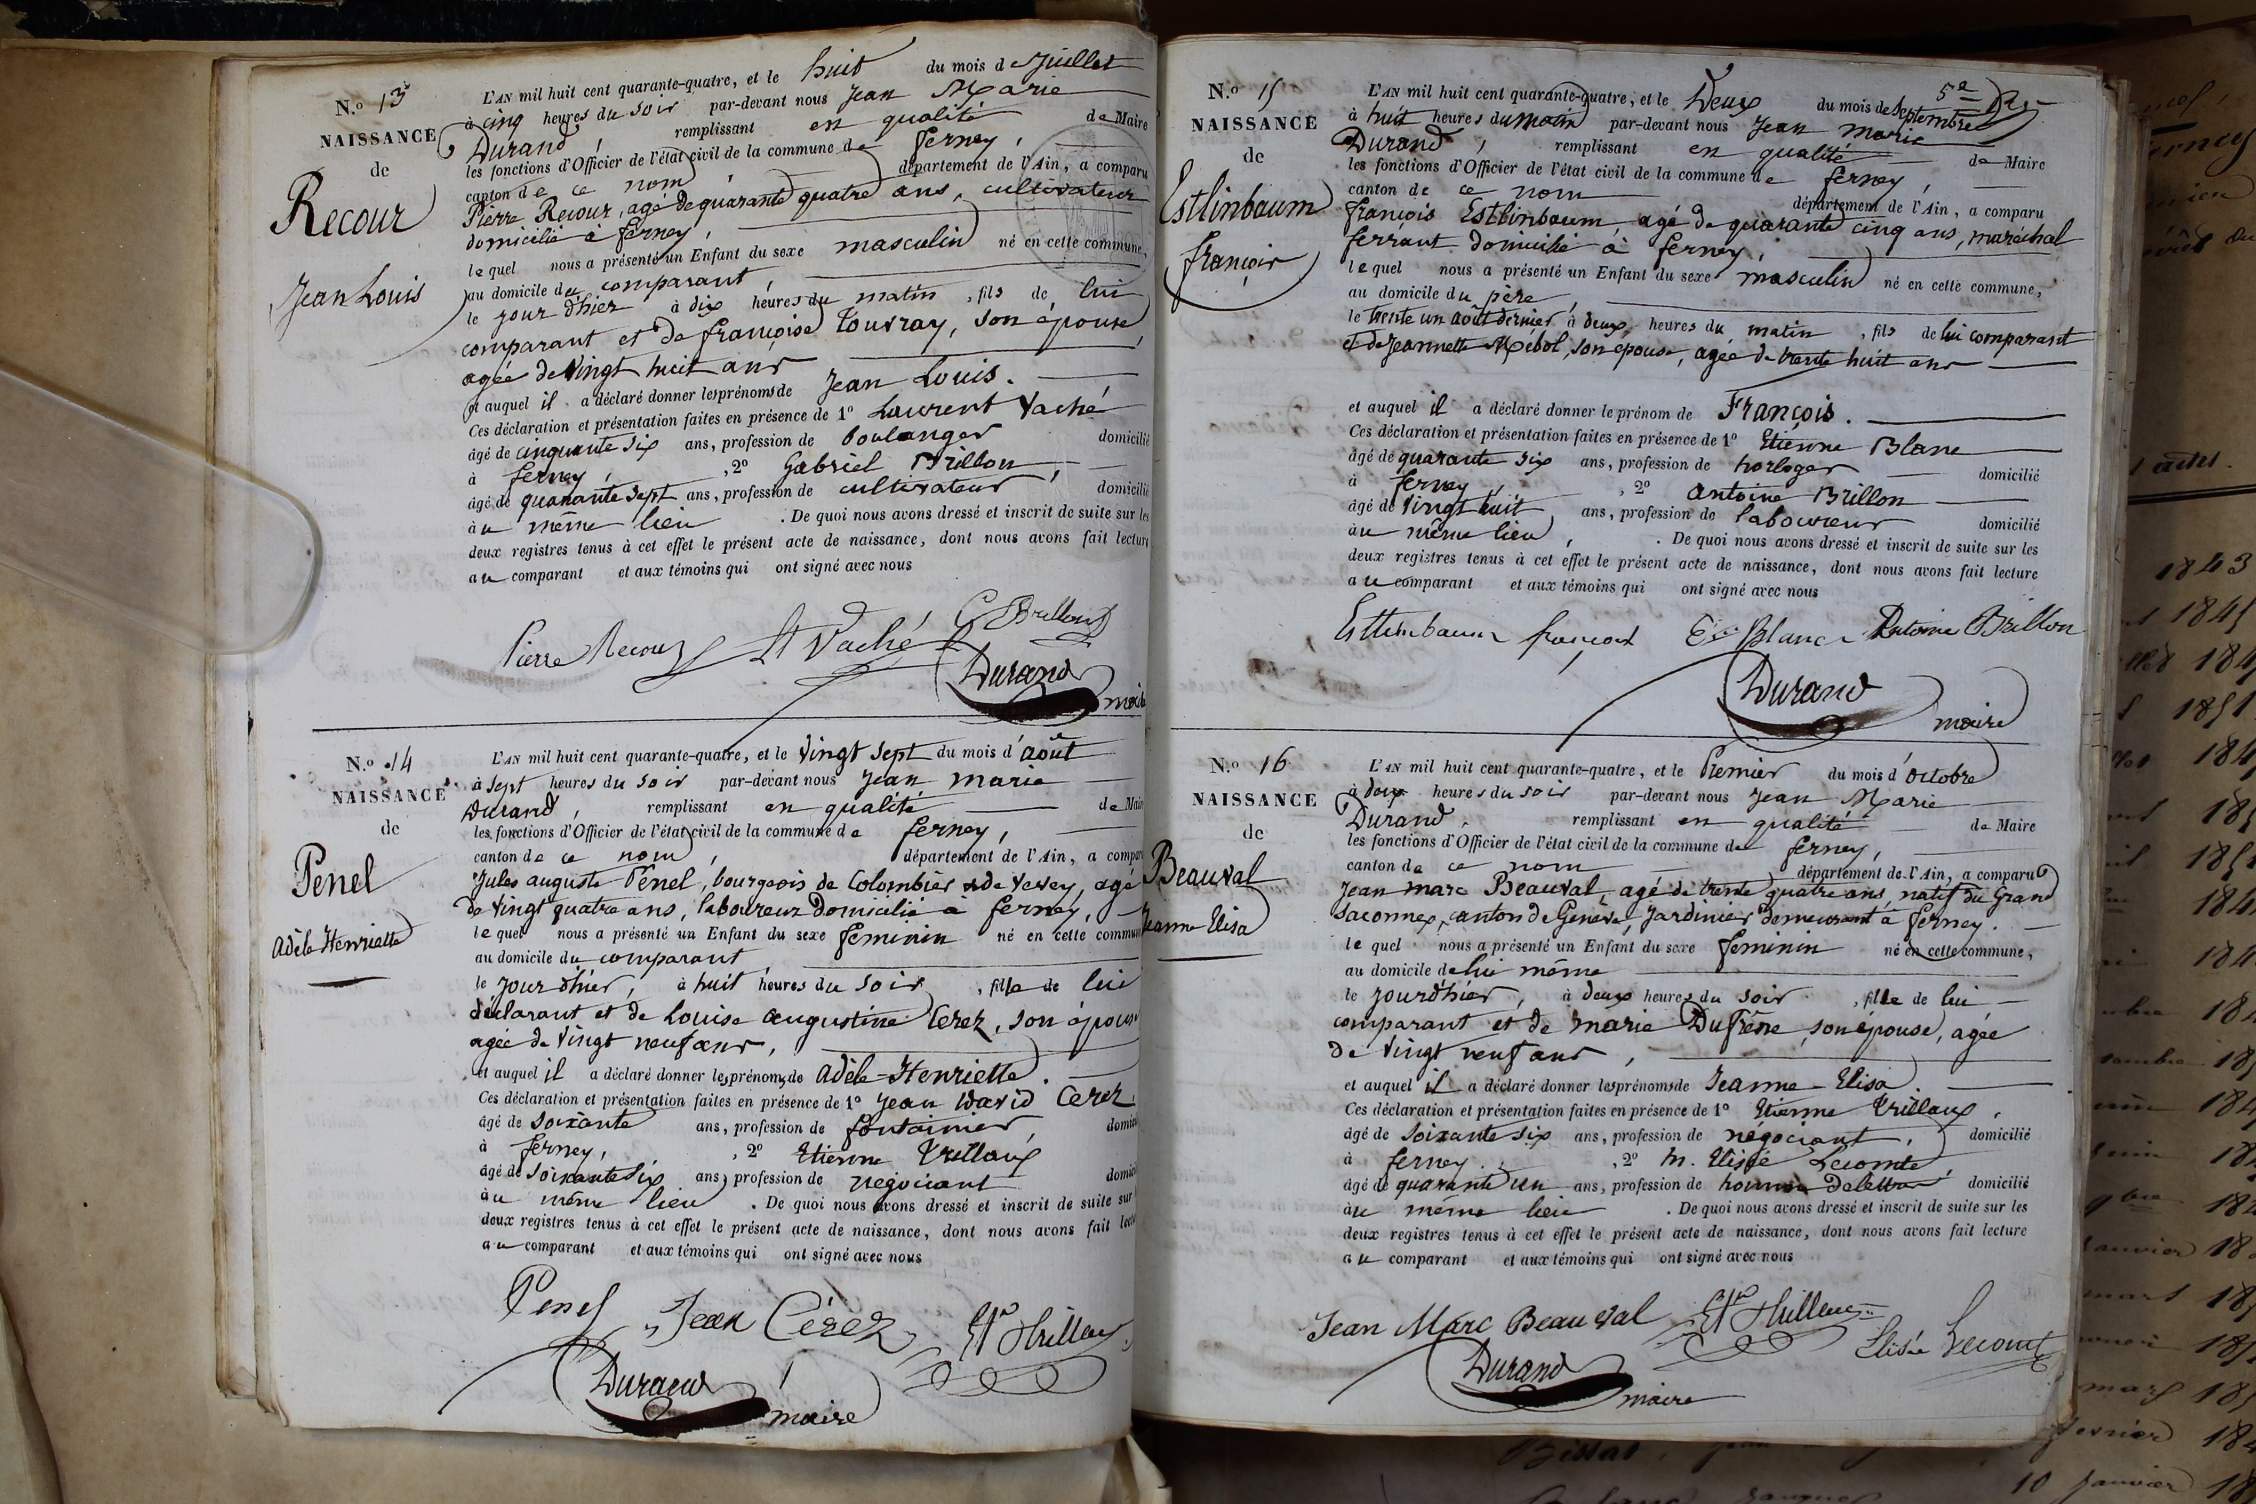 N.º 13
NAISSANCE
de
Recour
Jean Louis
L'AN mil huit cent quarante-quatre, et le huit du mois de Juillet
à cinq heures du soir par-devant nous Jean Marie
Durand, remplissant en qualité de Maire
les fonctions d'Officier de l'état civil de la commune de ferney,
canton de ce nom département de l'Ain, a comparu
Pierre Recour, agé de quarante quatre ans, cultivateur
domicilié à ferney,
lequel nous a présenté un Enfant du sexe masculin né en cette commune,
au domicile du comparant,
le jour d'hier à dix heures du matin, fils de lui
comparant et de françoise Touvray, son épouse,
agée de vingt huit ans
et auquel il a déclaré donner les prénoms de Jean Louis.
Ces déclaration et présentation faites en présence de 1º Laurent Vaché
âgé de cinquante six ans, profession de boulanger domicilié
à ferney, , 2º Gabriel Brillon,
âgé de quarante sept ans, profession de cultivateur, domicilié
au même lieu . De quoi nous avons dressé et inscrit de suite sur les
deux registres tenus à cet effet le présent acte de naissance, dont nous avons fait lecture
au comparant et aux témoins qui ont signé avec nous
Pierre Recour Lt Vaché G Brillon
Durand
maire
N.º 14
NAISSANCE
de
Penel
Adèle Henriette
L'AN mil huit cent quarante-quatre, et le vingt sept du mois d'août
à sept heures du soir par-devant nous Jean marie
Durand, remplissant en qualité de Maire
les fonctions d'Officier de l'état civil de la commune de ferney,
canton de ce nom, département de l'Ain, a comparu
Jules auguste Penel, bourgeois de Colombier & de Vevey, agé
de vingt quatre ans, laboureur domicilié à ferney,
lequel nous a présenté un Enfant du sexe feminin né en cette commune
au domicile du comparant
le jour d'hier, à huit heures du soir, fille de lui
déclarant et de Louise augustine Cerez, son épouse
agée de vingt neuf ans,
et auquel il a déclaré donner les prénoms de adèle-Henriette.
Ces déclaration et présentation faites en présence de 1º Jean David Cerez,
âgé de soixante ans, profession de fontainier, domici
à ferney, , 2º Etienne Trillaux
âgé de soixante six ans, profession de négociant domici
au même lieu . De quoi nous avons dressé et inscrit de suite sur
deux registres tenus à cet effet le présent acte de naissance, dont nous avons fait lectu
au comparant et aux témoins qui ont signé avec nous
Penel Jean Cérez
Durand
maire
N.º 15
NAISSANCE
de
Estlinbaum
françois
5e
L'AN mil huit cent quarante-quatre, et le Deux du mois de septembre
à huit heures du matin par-devant nous Jean marie
Durand, remplissant en qualité de Maire
les fonctions d'Officier de l'état civil de la commune de ferney,
canton de ce nom département de l'Ain, a comparu
françois Estlinbaum, agé de quarante cinq ans, maréchal
ferrant domicilié à ferney,
lequel nous a présenté un Enfant du sexe masculin né en cette commune,
au domicile du père,
le trente un août dernier à deux heures du matin, fils de lui comparant
et de Jeannette Mebol, son epouse, agée de trente huit ans
et auquel il a déclaré donner le prénom de François.
Ces déclaration et présentation faites en présence de 1º Etienne Blanc
âgé de quarante six ans, profession de horloger domicilié
à ferney, , 2º antoine Brillon
âgé de vingt huit ans, profession de laboureur domicilié
au même lieu, . De quoi nous avons dressé et inscrit de suite sur les
deux registres tenus à cet effet le présent acte de naissance, dont nous avons fait lecture
au comparant et aux témoins qui ont signé avec nous
Estlinbaum françois Blanc Antoine Brillon
Durand
maire
N.º 16
NAISSANCE
de
Beauval
Jeanne Elisa
L'AN mil huit cent quarante-quatre, et le Premier du mois d'octobre
à deux heures du soir par-devant nous Jean Marie
Durand, remplissant en qualité de Maire
les fonctions d'Officier de l'état civil de la commune de ferney,
canton de ce nom département de l'Ain, a comparu
Jean marc Beauval, agé de trente quatre ans, natif du Grand
Saconnex, canton de Genève, Jardinier demeurant à ferney.
lequel nous a présenté un Enfant du sexe feminin né en cette commune,
au domicile de lui même
le jour d'hier, à deux heures du soir, fille de lui
comparant et de marie Dufrêne, son épouse, agée
de vingt neuf ans,
et auquel il a déclaré donner les prénoms de Jeanne-Elisa.
Ces déclaration et présentation faites en présence de 1º Etienne Trillaux,
âgé de soixante six ans, profession de négociant, domicilié
à ferney. , 2º m. Elisée Lecomte,
âgé de quarante un ans, profession de homme de lettres domicilié
au même lieu . De quoi nous avons dressé et inscrit de suite sur les
deux registres tenus à cet effet le présent acte de naissance, dont nous avons fait lecture
au comparant et aux témoins qui ont signé avec nous
Jean Marc Beauval Elisée Lecomte
Durand
maire